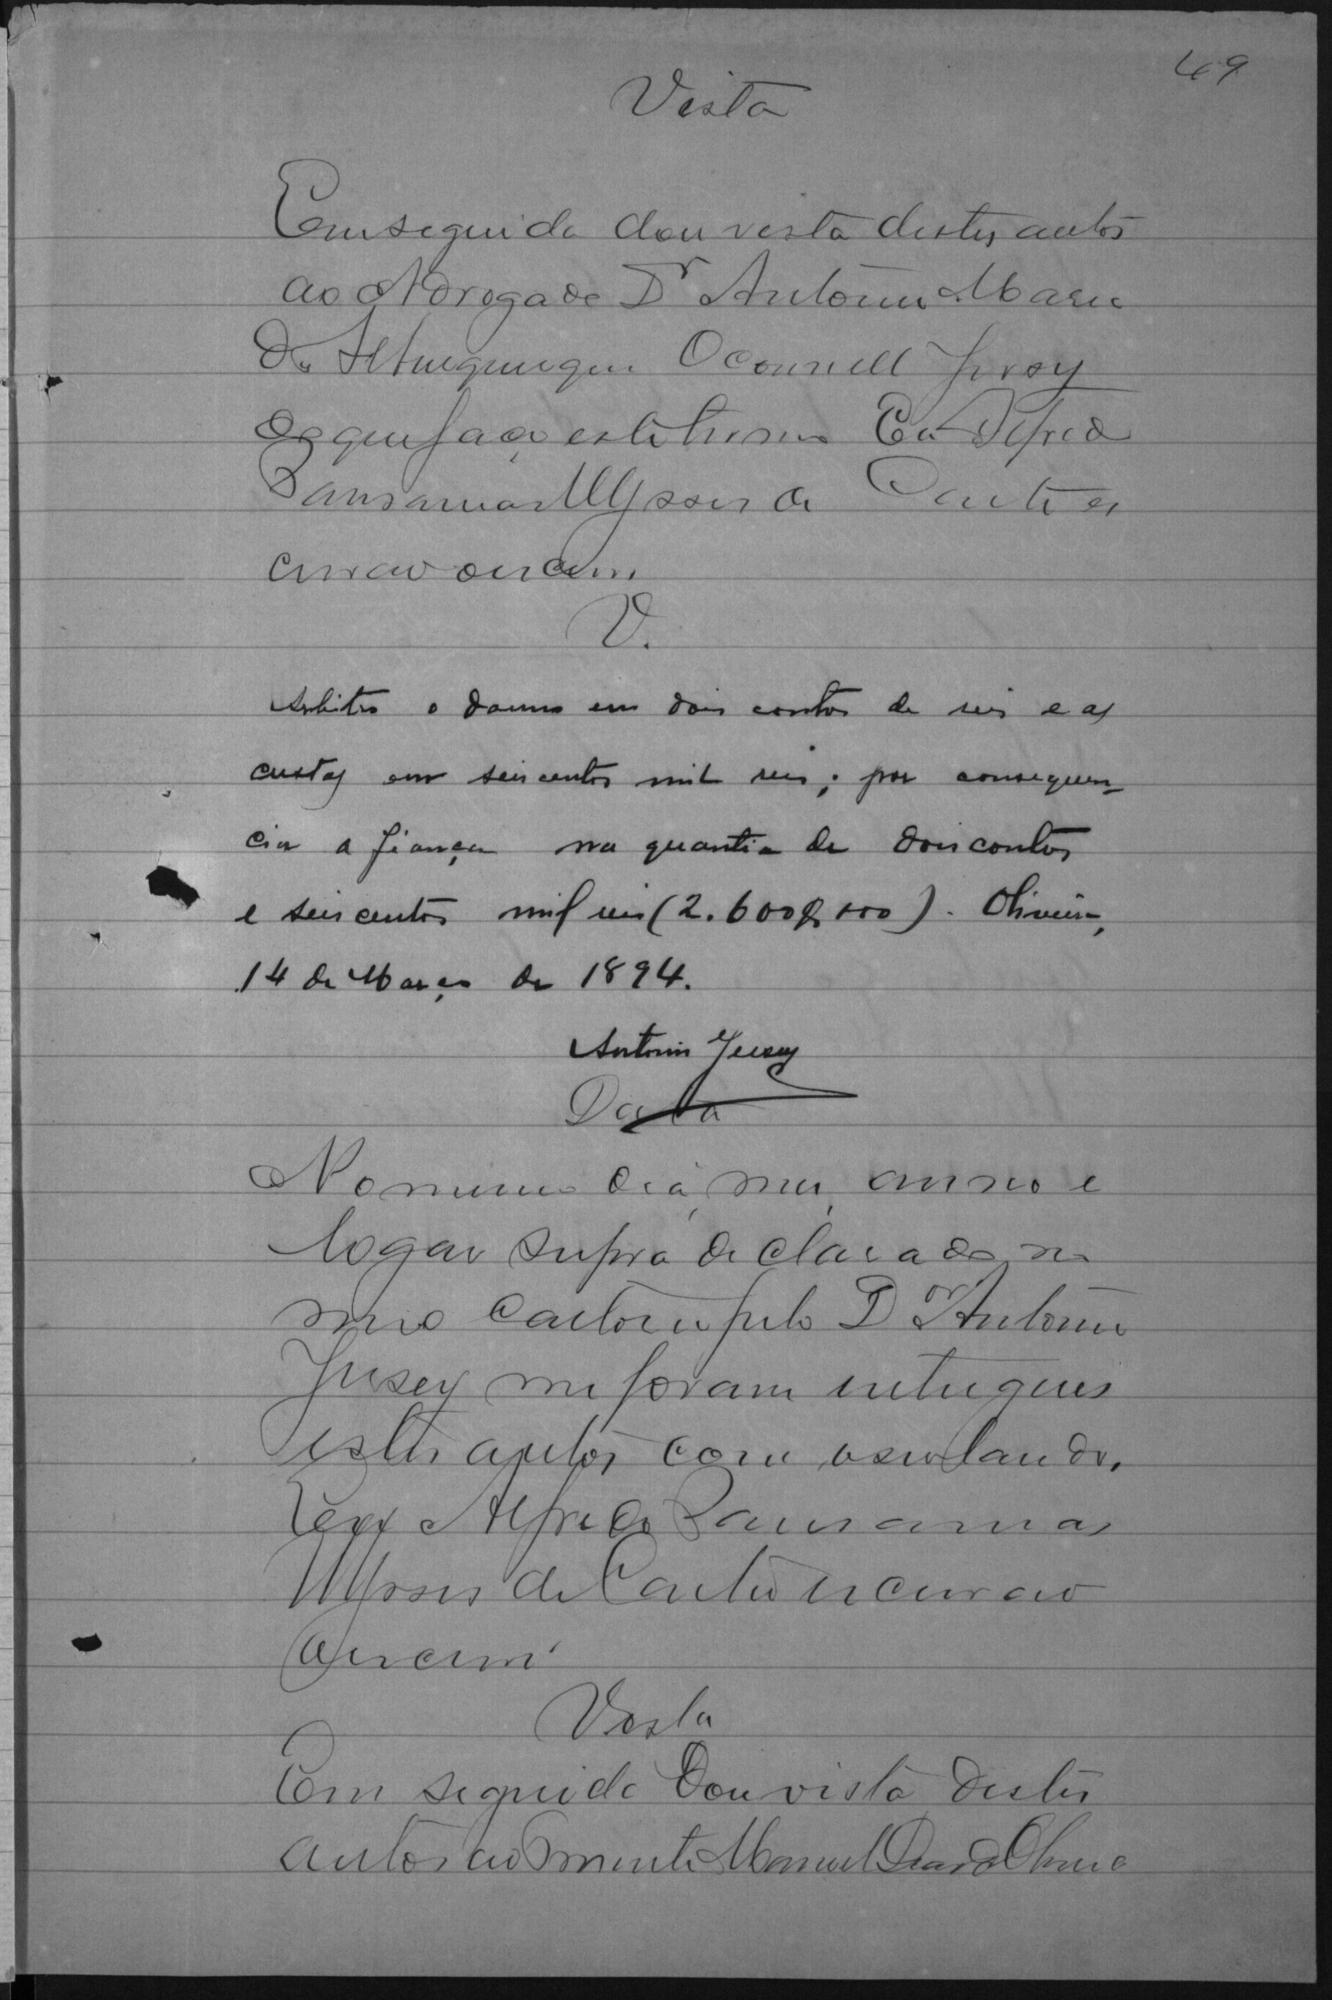 49
Vista
Em seguida dou vista destes autos
ao Advogado Dr Antonio Maria
de Albuquerque Oconnell Jersey
do que faço este termo Eu Alfredo
Pausanias Ulysses de Castro es
crivão
V.
Arbitro o damno em dois contos de reis e as
custas em seiscentos mil reis; por consequen
cia a fiança na quantia de dois contos
e seiscentos mil reis (2.600$000). Oliveira,
14 de Março de 1894.
Antonio Jersey
Data
No mesmo dia, mez, anno e
logar supra declarado no
meo cartorio pelo Dor Antonio
Jersey me foram entregues
estes autos com
Eu Alfredo Pausanias
Ulysses de Castro escrivão

Vista
Em seguida dou vista destes
autos ao Manoel